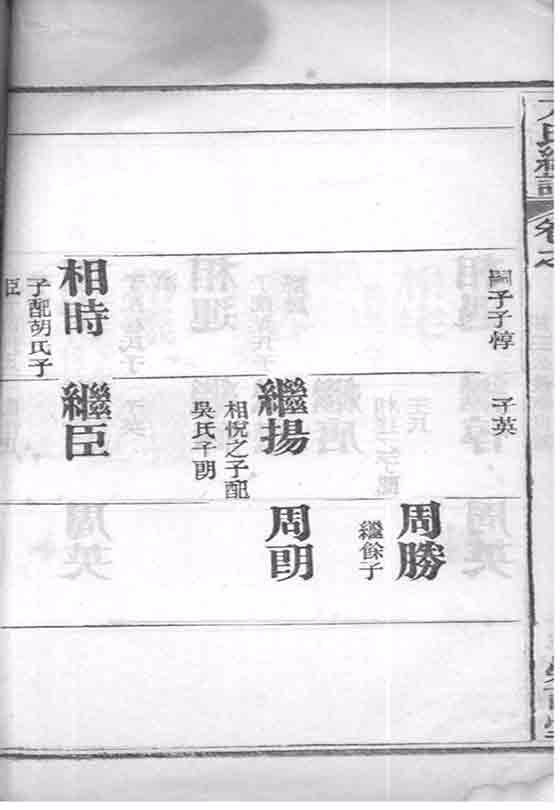 卷之
嗣子子惇
相時
子配胡氏子
臣
子英
繼揚
相悅之子配
吳氏子朗
繼臣
周勝
繼餘子
周朗